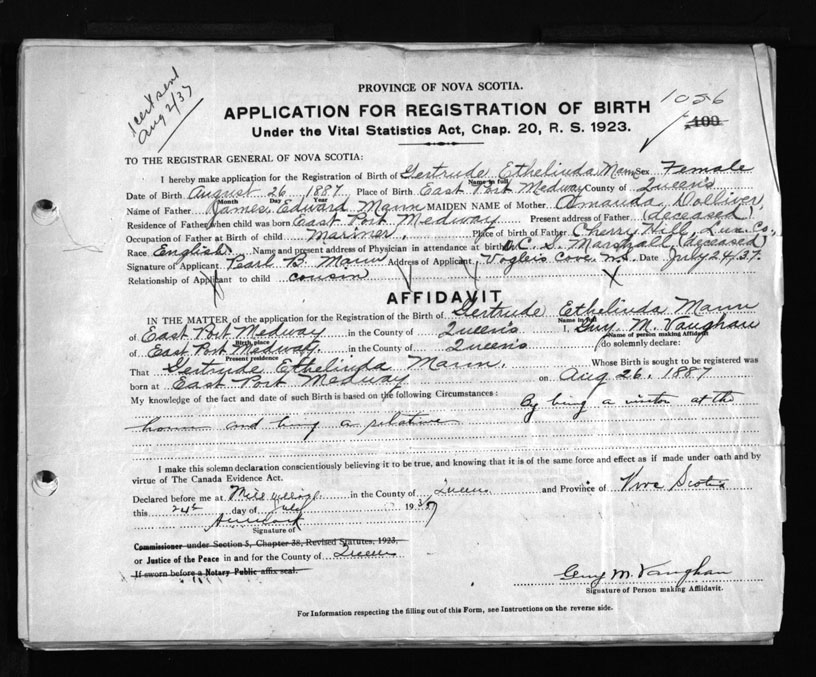 1 cert sent
Aug 2/37
PROVINCE OF NOVA SCOTIA.
APPLICATION FOR REGISTRATION OF BIRTH
1056
100
Under the Vital Statistics Act, Chap. 20, R. S. 1923.
TO THE REGISTRAR GENERAL OF NOVA SCOTIA:
I hereby make application for the Registration of Birth of Gertrude Ethelinda Mann Sex Female
Name in full
Date of Birth August 26 1887 Place of Birth East Port Medway County of Queen's
Month Day Year
Name of Father James Edward Mann MAIDEN NAME of Mother Amanda Dolliver
Residence of Father when child was born East Port Medway Present address of Father (deceased)
Occupation of Father at Birth of child Mariner. Place of birth of Father Cherry Hill, Lun. Co.,
Race English. Name and present address of Physician in attendance at birth Dr. C. S. Marshall, (deceased)
Signature of Applicant Pearl B. Mann Address of Applicant Voglers Cove, N.S. Date July 24/37.
Relationship of Applicant to child cousin
AFFIDAVIT
IN THE MATTER of the application for the Registration of the Birth of Gertrude Ethelinda Mann
Name in full
of East Port Medway in the County of Queen's I, Guy M. Vaughan
Birth place Name of person making Affidavit
of East Port Medway, in the County of Queen's do solemnly declare:
Present residence
That Gertrude Ethelinda Mann. Whose Birth is sought to be registered was
born at East Port Medway on Aug 26, 1887
My knowledge of the fact and date of such Birth is based on the following Circumstances: By being a visitor at the
home and being a relative
I make this solemn declaration conscientiously believing it to be true, and knowing that it is of the same force and effect as if made under oath and by
virtue of The Canada Evidence Act.
Declared before me at Mill Village in the County of Queens and Province of Nova Scotia
this 24th day of July 1937
Signature of
Commissioner under Section 5, Chapter 38, Revised Statutes, 1923,
or Justice of the Peace in and for the County of Queens
If sworn before a Notary Public affix seal.
Guy M. Vaughan
Signature of Person making Affidavit.
For Information respecting the filling out of this Form, see Instructions on the reverse side.